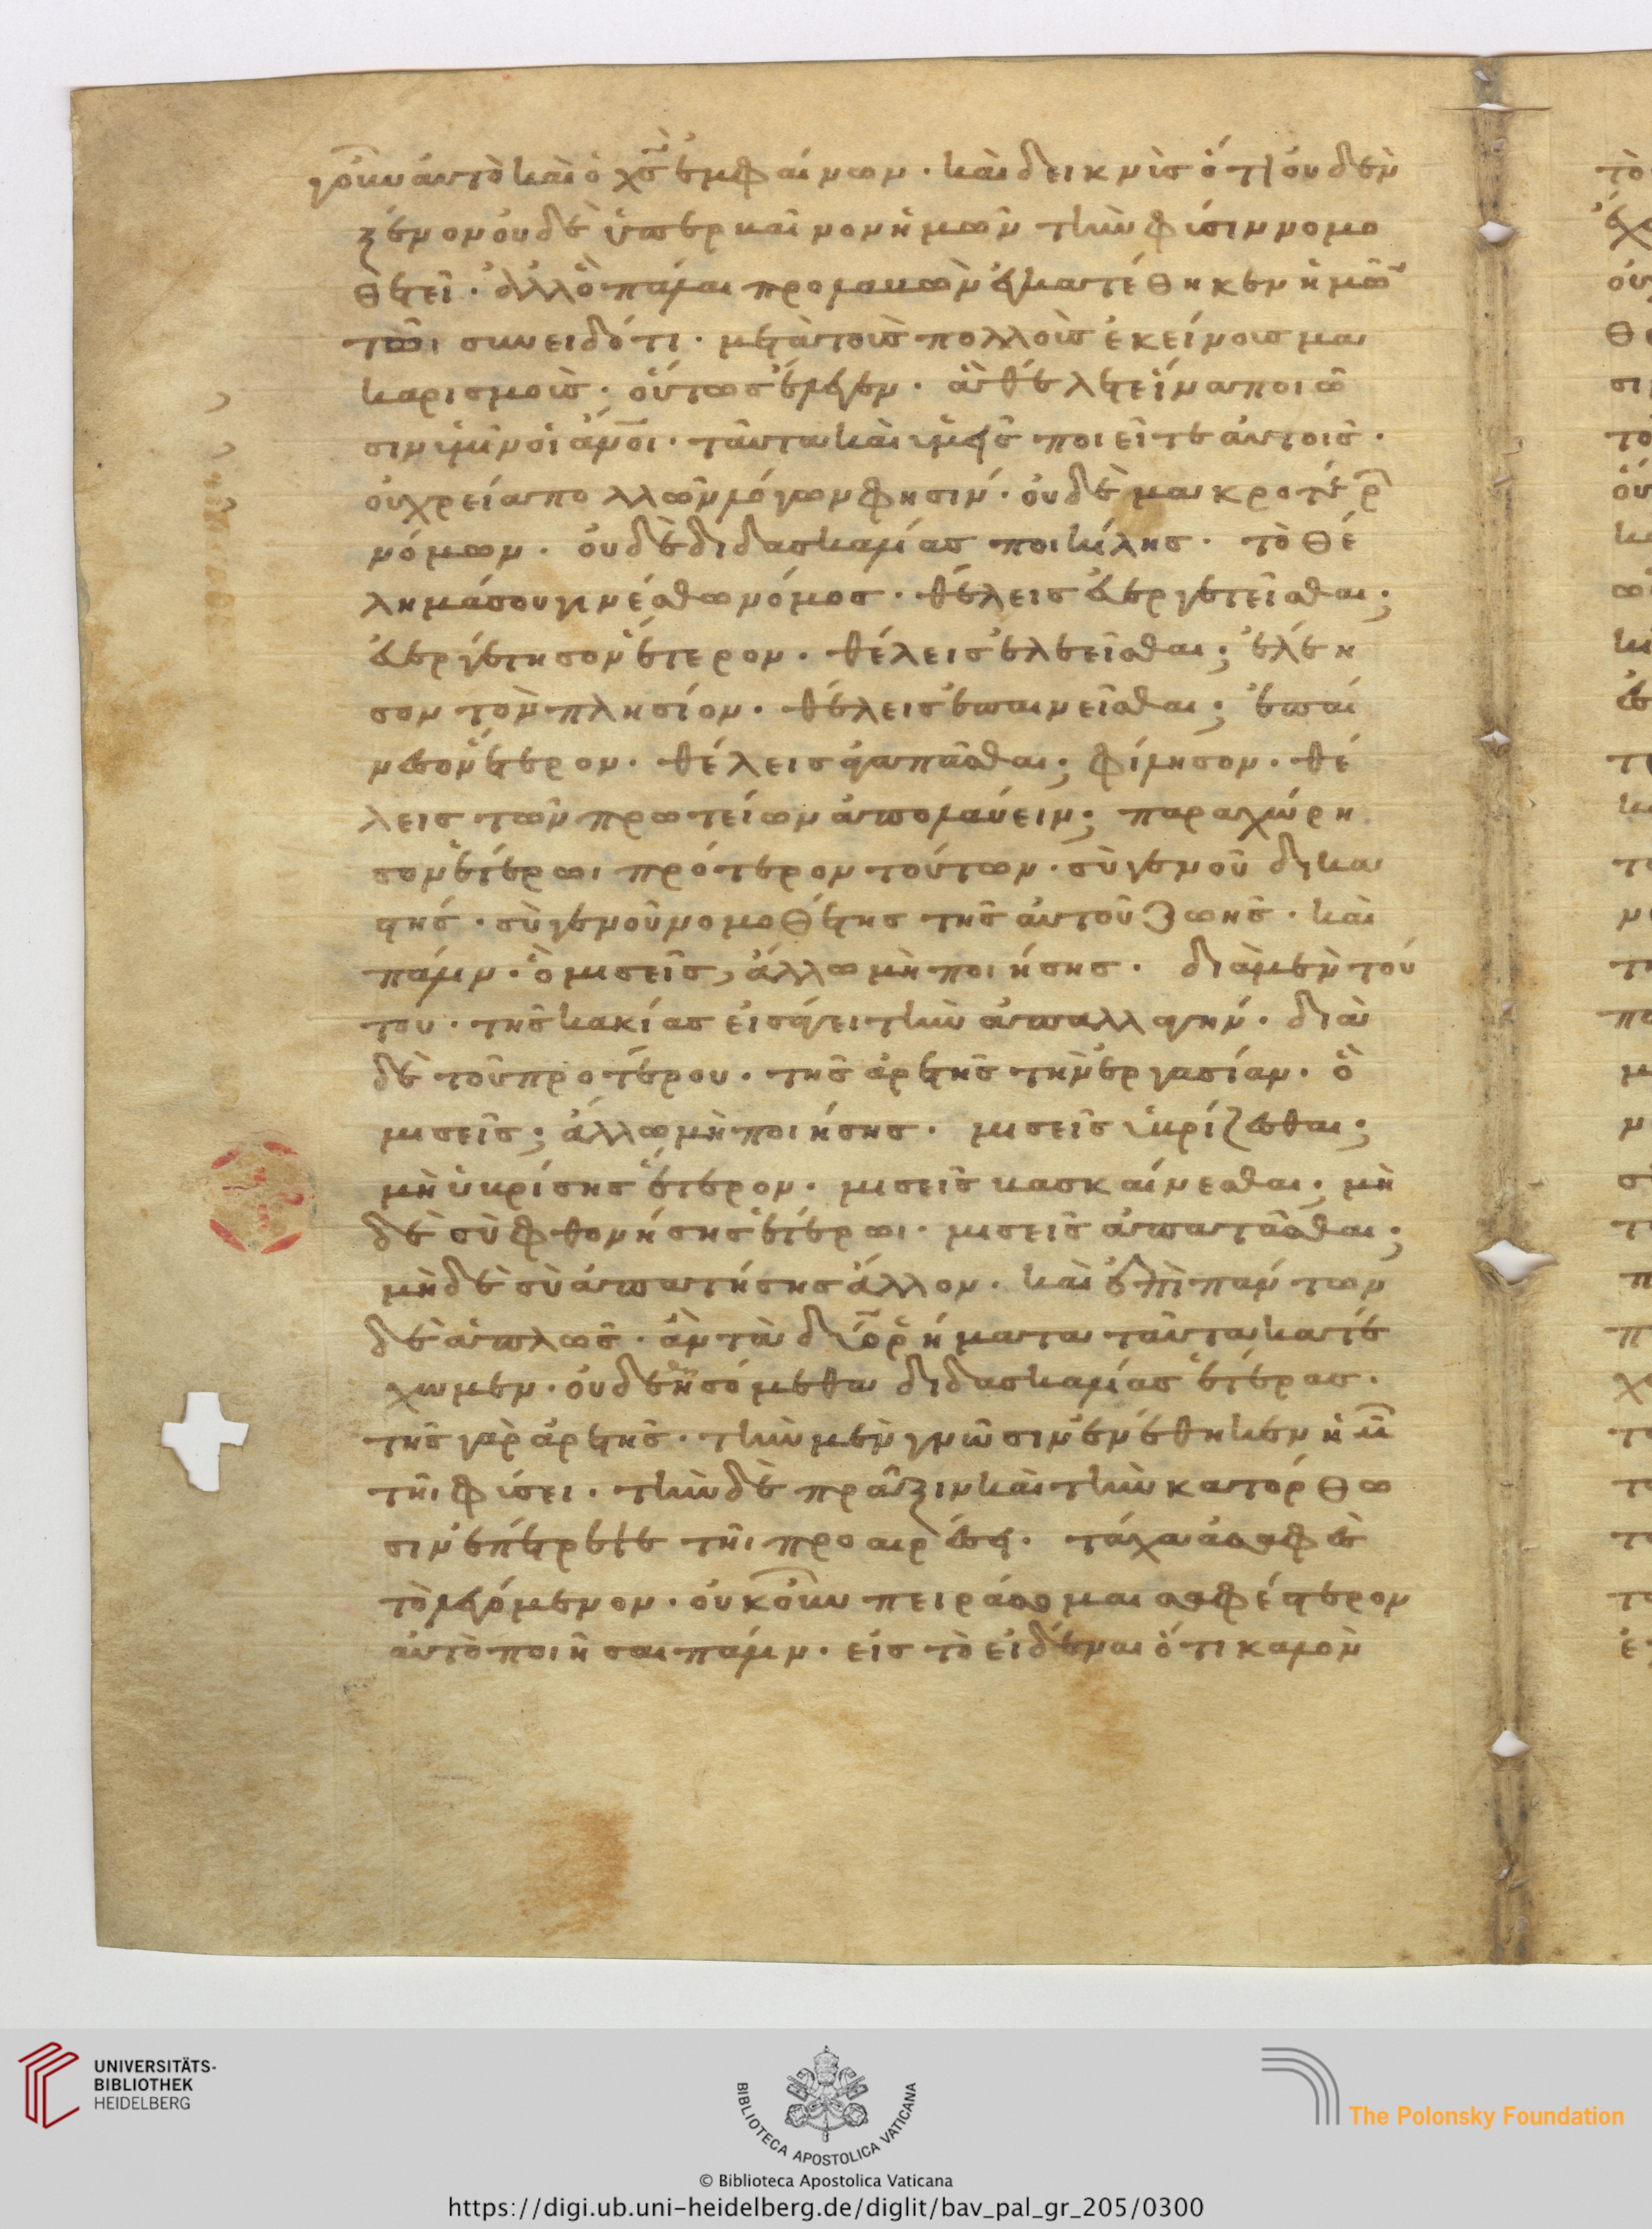 γοῦν αὐτὸ καὶ ὁ χσ ἐμφαίνων· καὶ δεικνὺς ὅτι οὐδὲν
ξένον οὐδὲ ὑπερβαῖνον ἡμῶν τὴν φύσιν νομο
θετεῖ· ἀλλ' ὃ πάλαι προλαβὼν ἐγκατέθηκεν ἡμῶν
τῶι συνειδότι· μετὰ τοὺς πολλοὺς ἐκείνους μα
καρισμοὺς· οὕτως ἔλεγεν· ἃ θέλετε ἵνα ποιῶ
σιν ὑμῖν οἱ ἄνοι· ταῦτα καὶ ὑμεῖς ποιεῖτε αὐτοῖς·
οὐ χρεία πολλῶν λόγων φησίν· οὐδὲ μακροτέρ
νόμων· οὐδὲ διδασκαλίας ποικίλης· τὸ θέ
λημά σου γινέσθω νόμος· θέλεις εὐεργετεῖσθαι;
εὐεργέτησον ἕτερον· θέλεις ἐλεεῖσθαι; ἐλέη
σον τὸν πλησίον· θέλεις ἐπαινεῖσθαι; ἐπαί
νεσον ἕτερον· θέλεις ἀγαπᾶσθαι; φίλησον· θέ
λεις τῶν πρωτείων ἀπολαύειν; παραχώρη
σον ἑτέρωι πρότερον τούτων· σὺ γενοῦ δικα
στής· σὺ γενοῦ νομοθέτης τῆς αὐτοῦ ζωῆς· καὶ
πάλιν· ὃ μισεῖς, ἄλλω μὴ ποιήσης· διὰ μὲν τού
του· τῆς κακίας εἰσάγει τὴν ἀπαλλαγήν· διὰ
δὲ τοῦ προτέρου· τῆς ἀρετῆς τὴν ἐργασίαν· ὃ
μισεῖς; ἄλλω μὴ ποιήσης· μισεῖς ὑβρίζεσθαι;
μὴ ὑβρίσης ἕτερον· μισεῖς βασκαίνεσθαι; μὴ
δὲ σὺ φθονήσης ἑτέρωι· μισεῖς ἀπατᾶσθαι;
μὴ δὲ σὺ ἀπατήσης ἄλλον· καὶ ἐπὶ πάντων
δὲ ἁπλῶς· ἂν τὰ δύο ῥήματα ταῦτα κατέ
χωμεν· οὐ δεηθησόμεθα διδασκαλίας ἑτέρας·
τῆς γὰρ ἀρετῆς· τὴν μὲν γνῶσιν ἐνέθηκεν ἡμῖ
τῆι φύσει· τὴν δὲ πρᾶξιν καὶ τὴν κατόρθω
σιν ἐπέτρεψε τῆι προαιρέσει· τάχα ἀσαφὲς
τὸ λεγόμενον· οὐκοῦν πειράσομαι σαφέστερον
αὐτὸ ποιῆσαι πάλιν· εἰς τὸ εἰδέναι ὅτι καλὸν
UNIVERSITÄTS-
BIBLIOTHEK
HEIDELBERG
BIBLIOTECA APOSTOLICA VATICANA
The Polonsky Foundation
© Biblioteca Apostolica Vaticana
https://digi.ub.uni-heidelberg.de/diglit/bav_pal_gr_205/0300